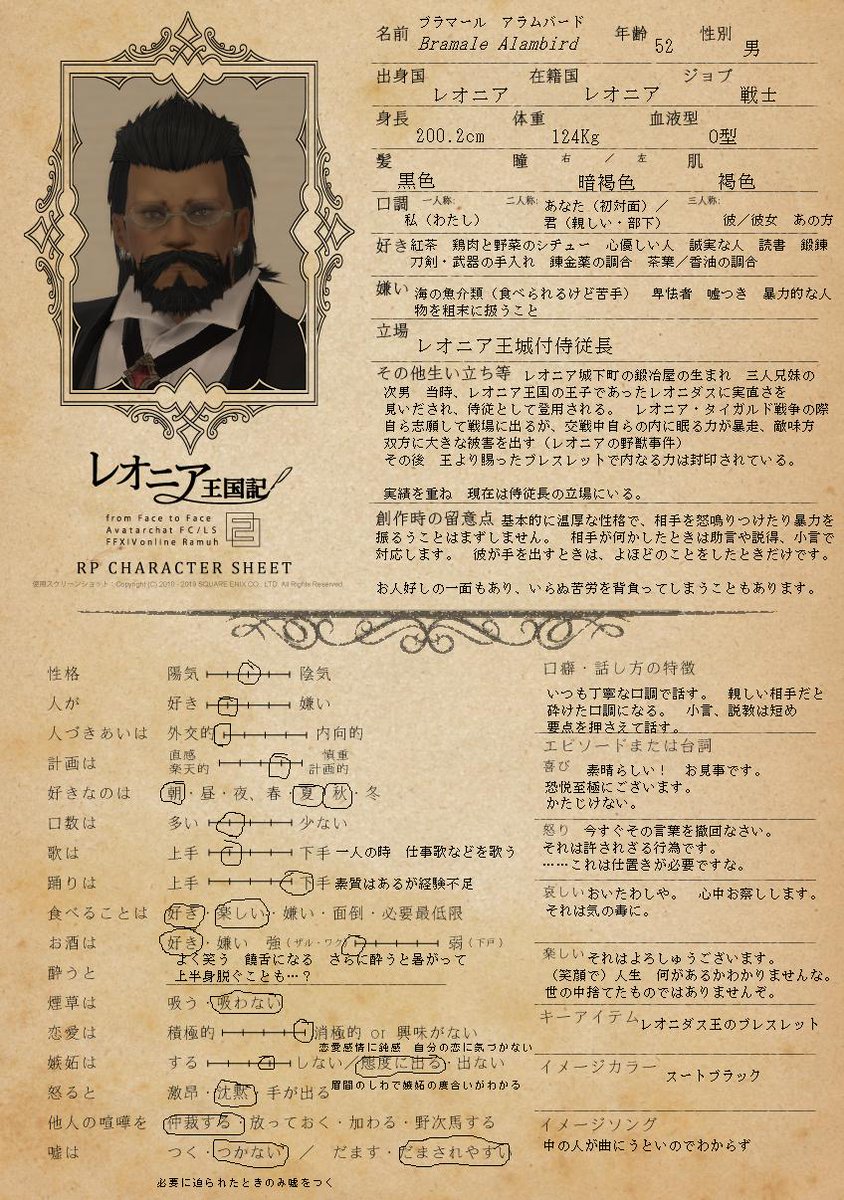 名前 ブラマール アラムバード
Bramale Alambird
年齢 52 性別 男
出身国 レオニア 在籍国 レオニア ジョブ 戦士
身長 200.2cm 体重 124Kg 血液型 O型
髪 黒色 瞳 右 / 左 暗褐色 肌 褐色
口調 一人称: 私(わたし) 二人称: あなた(初対面)/
君(親しい・部下) 三人称: 彼/彼女 あの方
好き 紅茶 鶏肉と野菜のシチュー 心優しい人 誠実な人 読書 鍛錬
刀剣・武器の手入れ 錬金薬の調合 茶葉/香油の調合
嫌い 海の魚介類(食べられるけど苦手) 卑怯者 嘘つき 暴力的な人
物を粗末に扱うこと
立場 レオニア王城付侍従長
その他生い立ち等 レオニア城下町の鍛冶屋の生まれ 三人兄妹の
次男 当時、レオニア王国の王子であったレオニダスに実直さを
見いだされ、侍従として登用される。 レオニア・タイガルド戦争の際
自ら志願して戦場に出るが、交戦中自らの内に眠る力が暴走、敵味方
双方に大きな被害を出す(レオニアの野獣事件)
その後 王より賜ったブレスレットで内なる力は封印されている。
実績を重ね 現在は侍従長の立場にいる。
創作時の留意点 基本的に温厚な性格で、相手を怒鳴りつけたり暴力を
振るうことはまずしません。 相手が何かしたときは助言や説得、小言で
対応します。 彼が手を出すときは、よほどのことをしたときだけです。
お人好しの一面もあり、いらぬ苦労を背負ってしまうこともあります。
レオニア王国記
from Face to Face
Avatarchat FC/LS
FFXIVonline Ramuh
RP CHARACTER SHEET
使用スクリーンショット:Copyright (C) 2010 - 2019 SQUARE ENIX CO., LTD. All Rights Reserved.
性格 陽気 陰気
人が 好き 嫌い
人づきあいは 外交的 内向的
計画は 直感 楽天的 慎重 計画的
好きなのは 朝・昼・夜、春・夏・秋・冬
口数は 多い 少ない
歌は 上手 下手 一人の時 仕事歌などを歌う
踊りは 上手 下手 素質はあるが経験不足
食べることは 好き・楽しい・嫌い・面倒・必要最低限
お酒は 好き・嫌い 強(ザル・ワク) 弱(下戸)
よく笑う 饒舌になる さらに酔うと暑がって
酔うと 上半身脱ぐことも…?
煙草は 吸う・吸わない
恋愛は 積極的 消極的 or 興味がない
恋愛感情に鈍感 自分の恋に気づかない
嫉妬は する しない/態度に出る・出ない
眉間のしわで嫉妬の度合いがわかる
怒ると 激昂・沈黙・手が出る
他人の喧嘩を 仲裁する・放っておく・加わる・野次馬する
嘘は つく・つかない / だます・だまされやすい
必要に迫られたときのみ嘘をつく
口癖・話し方の特徴
いつも丁寧な口調で話す。 親しい相手だと
砕けた口調になる。 小言、説教は短め
要点を押さえて話す。
エピソードまたは台詞
喜び 素晴らしい! お見事です。
恐悦至極にございます。
かたじけない。
怒り 今すぐその言葉を撤回なさい。
それは許されざる行為です。
……これは仕置きが必要ですな。
哀しい おいたわしや。 心中お察しします。
それは気の毒に。
楽しい それはよろしゅうございます。
(笑顔で)人生 何があるかわかりませんな。
世の中捨てたものではありませんぞ。
キーアイテム レオニダス王のブレスレット
イメージカラー スートブラック
イメージソング
中の人が曲にうといのでわからず